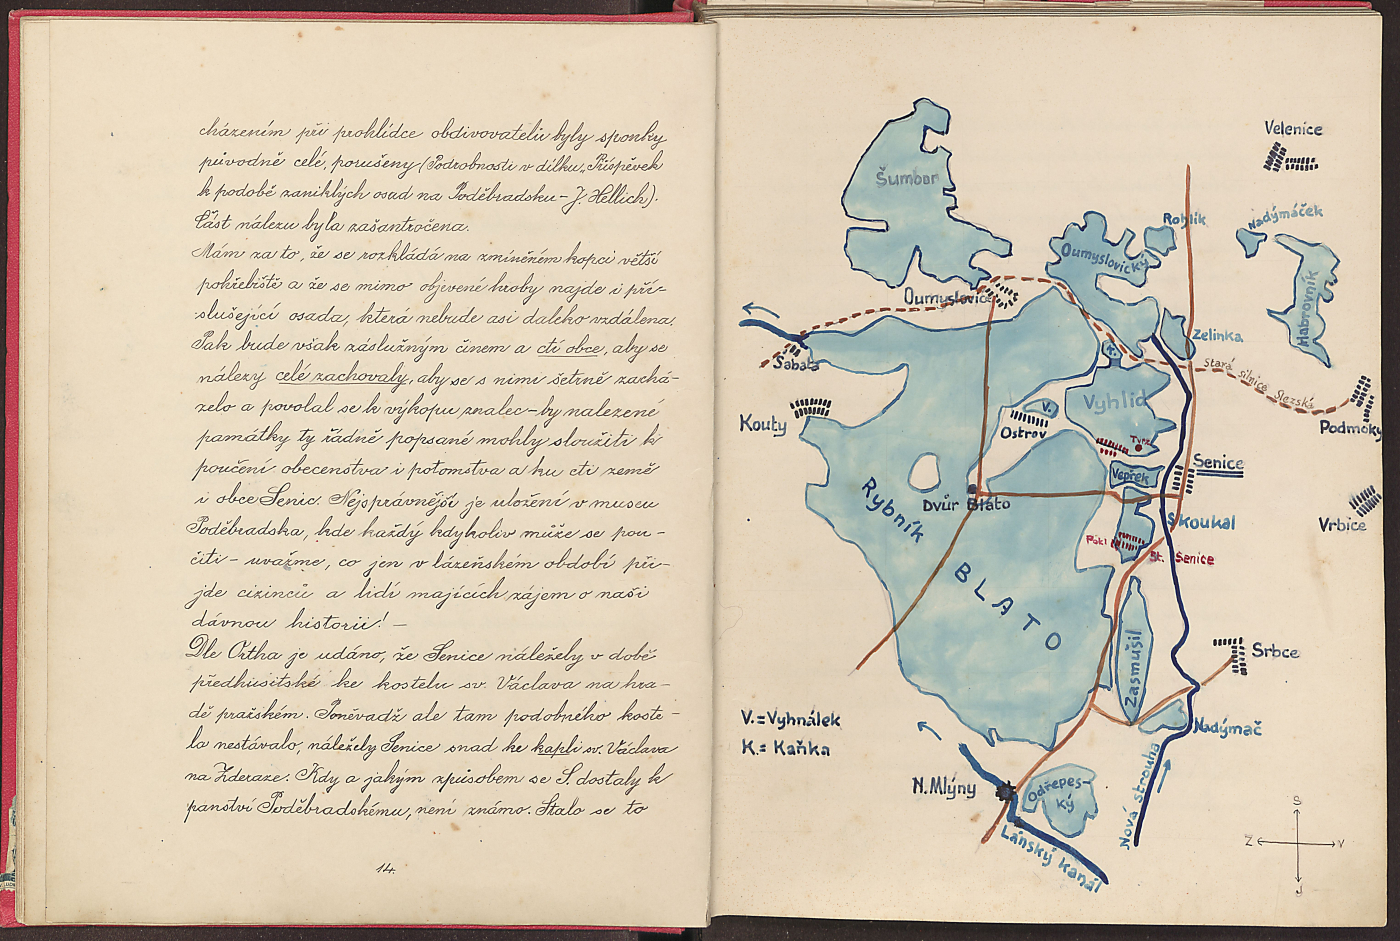 cházením při prohlídce obdivovatelů byly sponky
původně celé, porušeny (Podrobnosti v dílku „Příspěvek
k podobě zaniklých osad na Poděbradsku – J. Hellich).
Část nálezu byla zašantročena.
Mám za to, že se rozkládá na zmíněném kopci větší
pohřebiště a že se mimo objevené hroby najde i pří-
slušející osada, která nebude asi daleko vzdálena.
Pak bude však záslužným činem a ctí obce, aby se
nálezy celé zachovaly, aby se s nimi šetrně zachá-
zelo a povolal se k výkopu znalec – by nalezené
památky ty řádně popsané mohly sloužiti k
poučení obecenstva i potomstva a ku cti země
i obce Senic. Nejsprávnější je uložení v museu
Poděbradska, kde každý kdykoliv může se pou-
čiti – uvažme, co jen v lázeňském období při-
jde cizinců a lidí majících zájem o naši
dávnou historii! –
Dle Ortha je udáno, že Senice náležely v době
předhusitské ke kostelu sv. Václava na hra-
dě pražském. Poněvadž ale tam podobného koste-
la nestávalo, náležely Senice snad ke kapli sv. Václava
na Zderaze. Kdy a jakým způsobem se S. dostaly k
panství Poděbradskému, není známo. Stalo se to
14.
Velenice
Šumbor
Rohlík
Nadýmáček
Oumyslovický
Habrovník
Oumyslovice
Zelinka
K.
Sabata
Stará silnice Slezská
Vyhlíd
V.
Kouty
Ostrov
Podmoky
Tvrz
Senice
Vepřek
Rybník
Dvůr Bláto
Skoukal
Vrbice
St. Senice
BLATO
Zasmušil
Srbce
V. = Vyhnálek
K. = Kaňka
Nadýmač
N. Mlýny
Odřepes-
ký
Nová strouha
Lánský kanál
S
Z
V
J